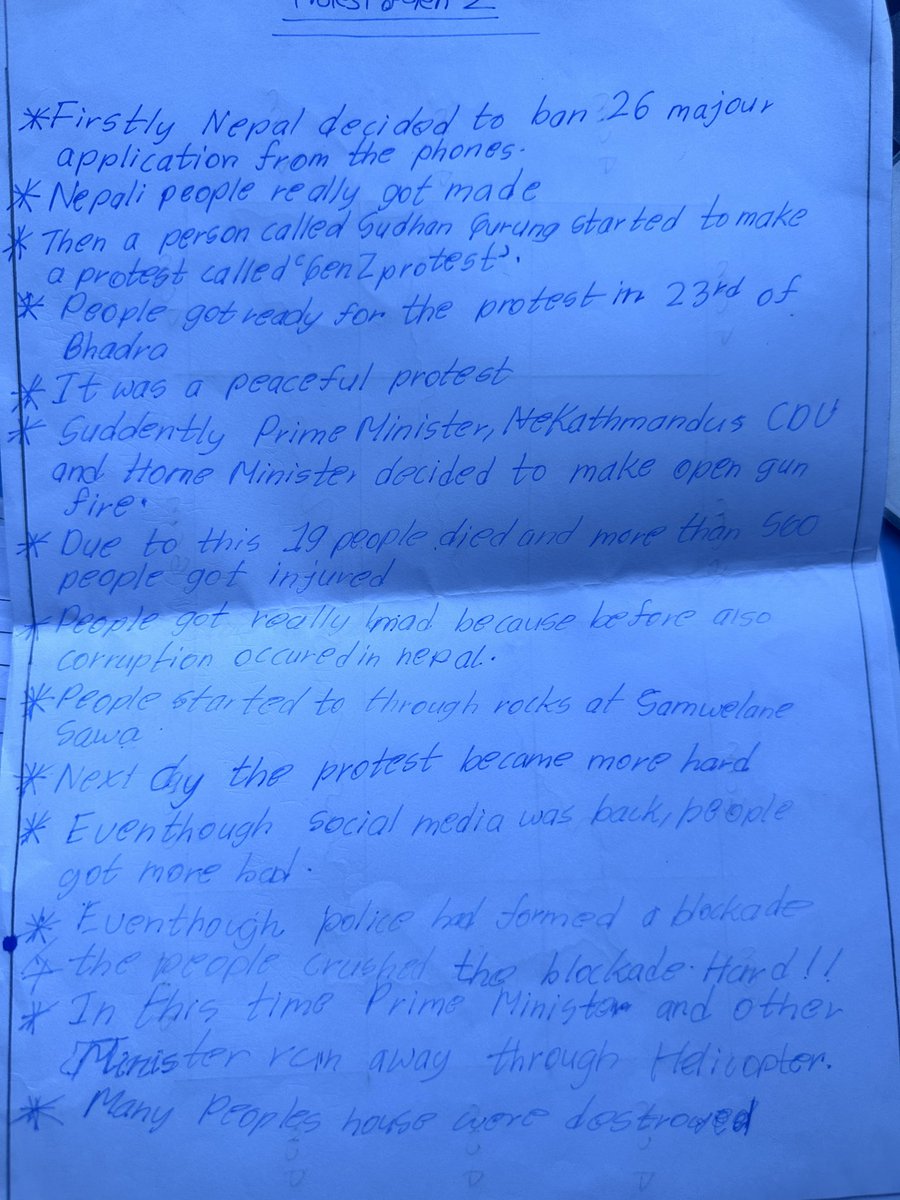 Protest of Gen Z
*Firstly Nepal decided to ban 26 majour
application from the phones.
* Nepali people really got made
* Then a person called Sudhan Gurung started to make
a protest called 'Gen Z protest'.
* People got ready for the protest in 23rd of
Bhadra
* It was a peaceful protest
* Suddently Prime Minister, Kathmandus CDO
and Home Minister decided to make open gun
fire.
* Due to this 19 people died and more than 500
people got injured
* People got really mad because before also
corruption occured in nepal.
* People started to through rocks at Samwelane
Sawa
* Next day the protest became more hard
* Eventhough social media was back, people
got more bad.
* Eventhough police had formed a blockade
* the people crushed the blockade. Hard!!
* In this time Prime Minister and other
Minister run away through Helicopter.
* Many Peoples house were destroyed